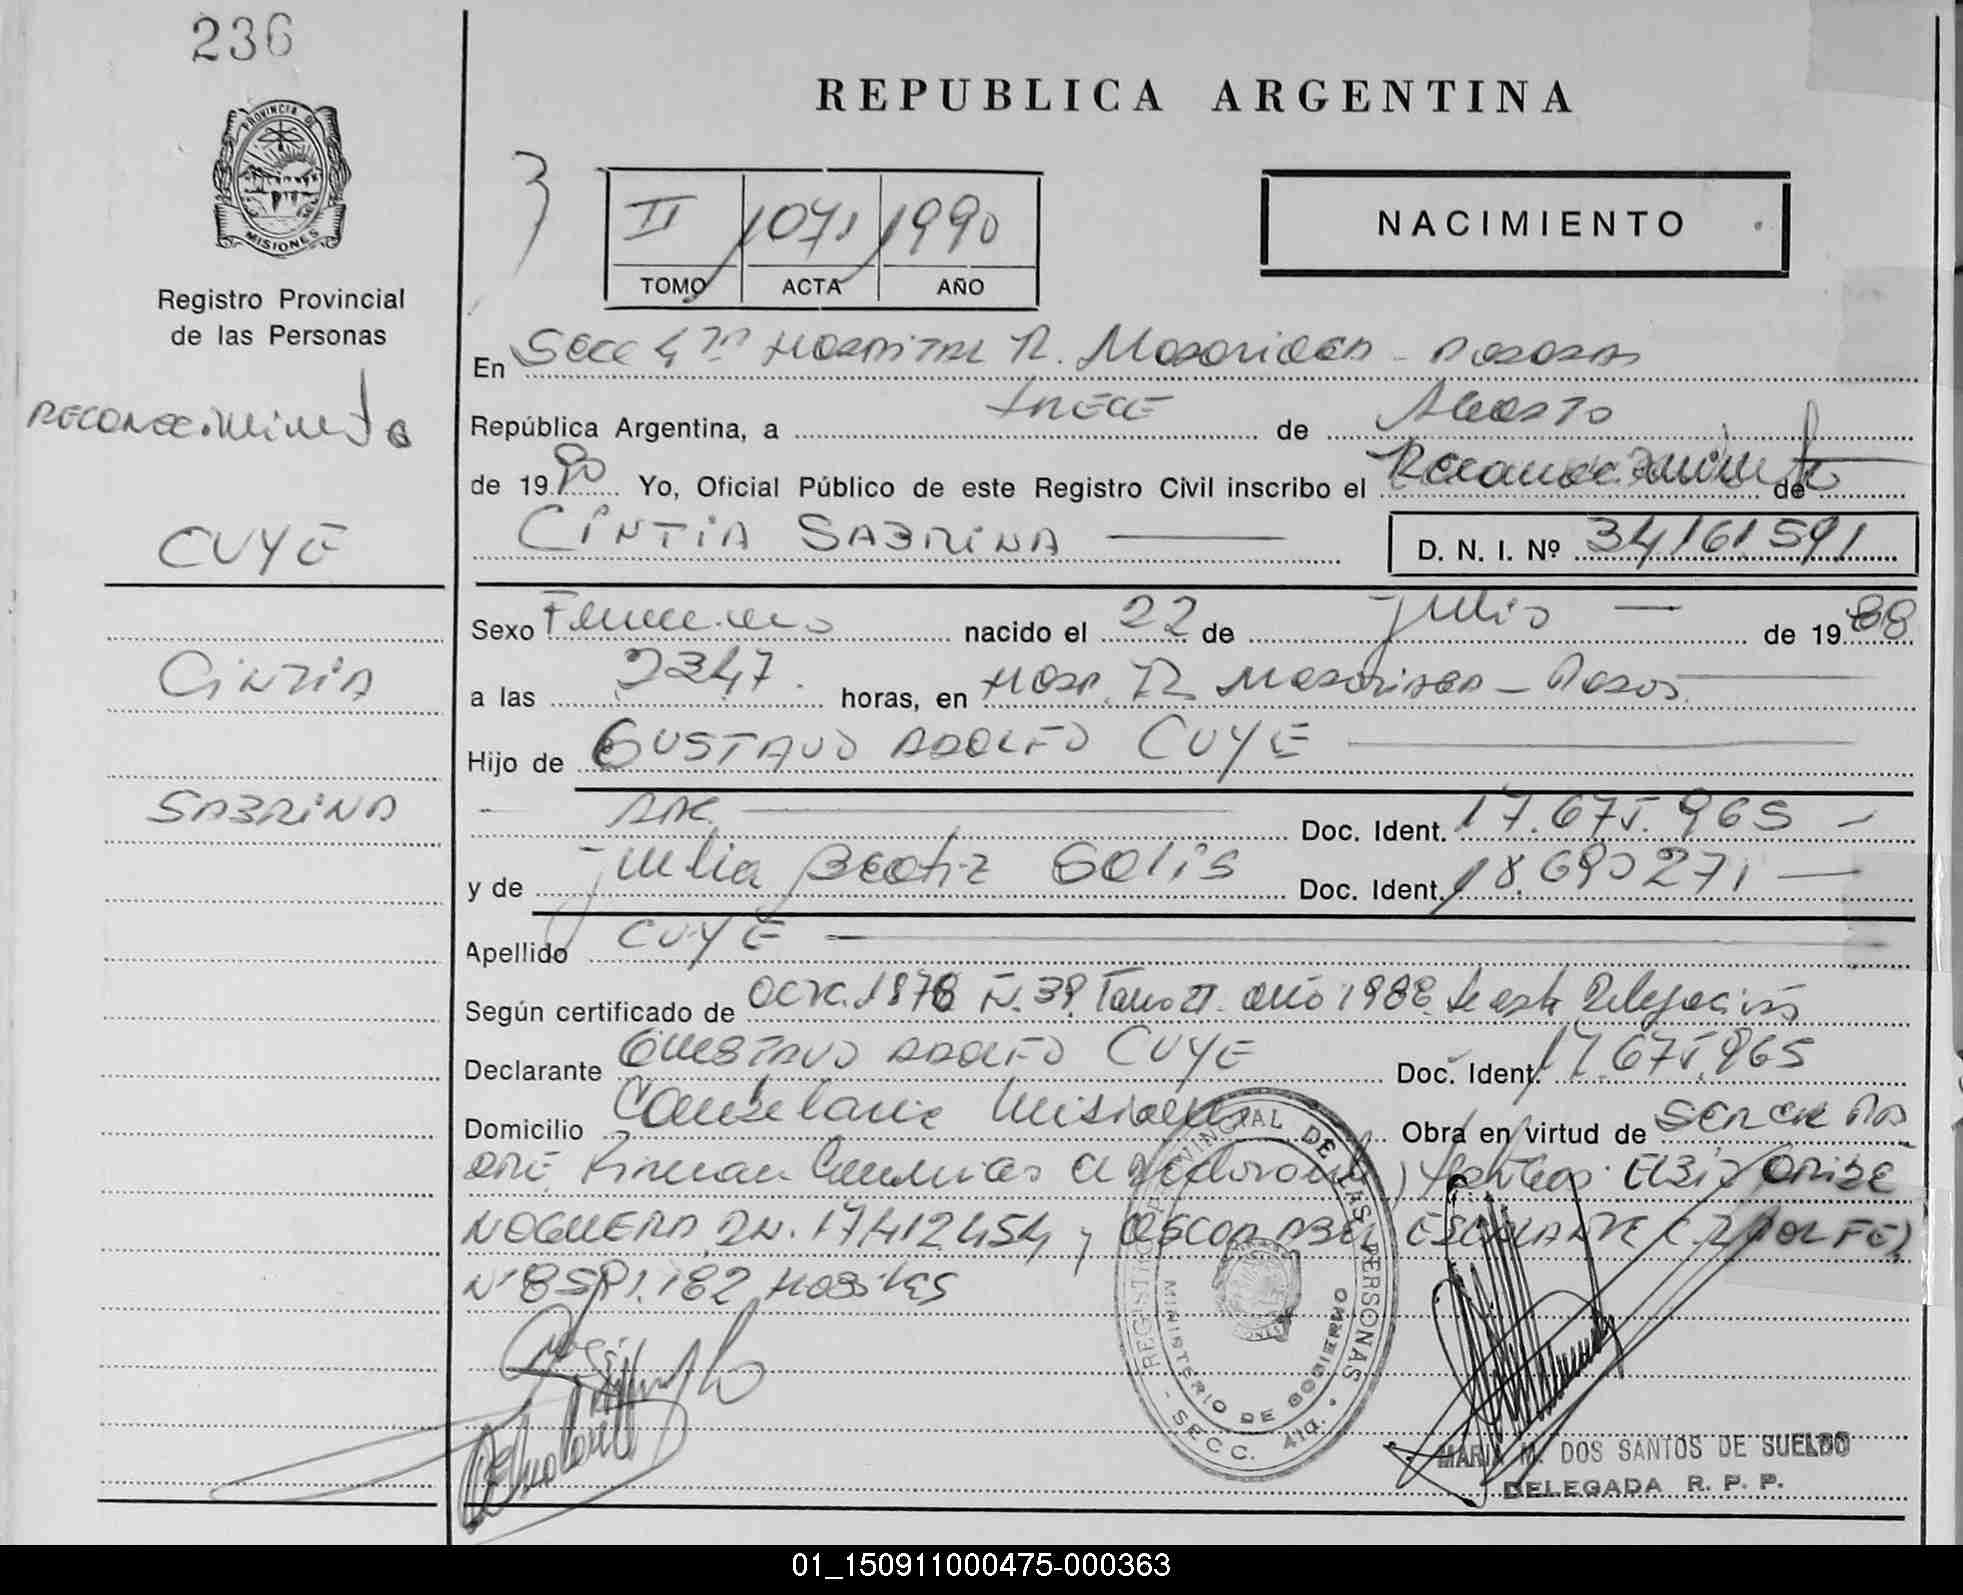 236
REPUBLICA ARGENTINA
PROVINCIA DE
MISIONES
II 1071 1990
TOMO ACTA AÑO
NACIMIENTO
Registro Provincial
de las Personas
Reconocimiento
CUYE
CINTIA
SABRINA
En Secc 4ta HOSPITAL R. Madariaga - Posadas
República Argentina, a trece de Agosto
de 1990 Yo, Oficial Público de este Registro Civil inscribo el Reconocimiento de
CINTIA SABRINA D. N. I. Nº 34161591
Sexo Femenino nacido el 22 de julio de 1988
a las 2347. horas, en Hosp. R Madariaga - Posadas
Hijo de GUSTAVO ADOLFO CUYE
ARG. Doc. Ident. 17.675.965
y de Julia Beatriz Solis Doc. Ident. 18.690271
Apellido CUYE
Según certificado de acta 1878 Tomo II año 1988 de esta Delegación
Declarante GUSTAVO ADOLFO CUYE Doc. Ident. 17.675.965
Domicilio Candelaria Misiones Obra en virtud de
Firman testigos ELBIO
NOGUERA 17412454 y OSCAR ABEL ESCALANTE (POL FE)
182
REGISTRO PROVINCIAL DE LAS PERSONAS
MINISTERIO DE GOBIERNO
- SECC. 4ta. -
MARIA M. DOS SANTOS DE SUELDO
DELEGADA R. P. P.
01_150911000475-000363